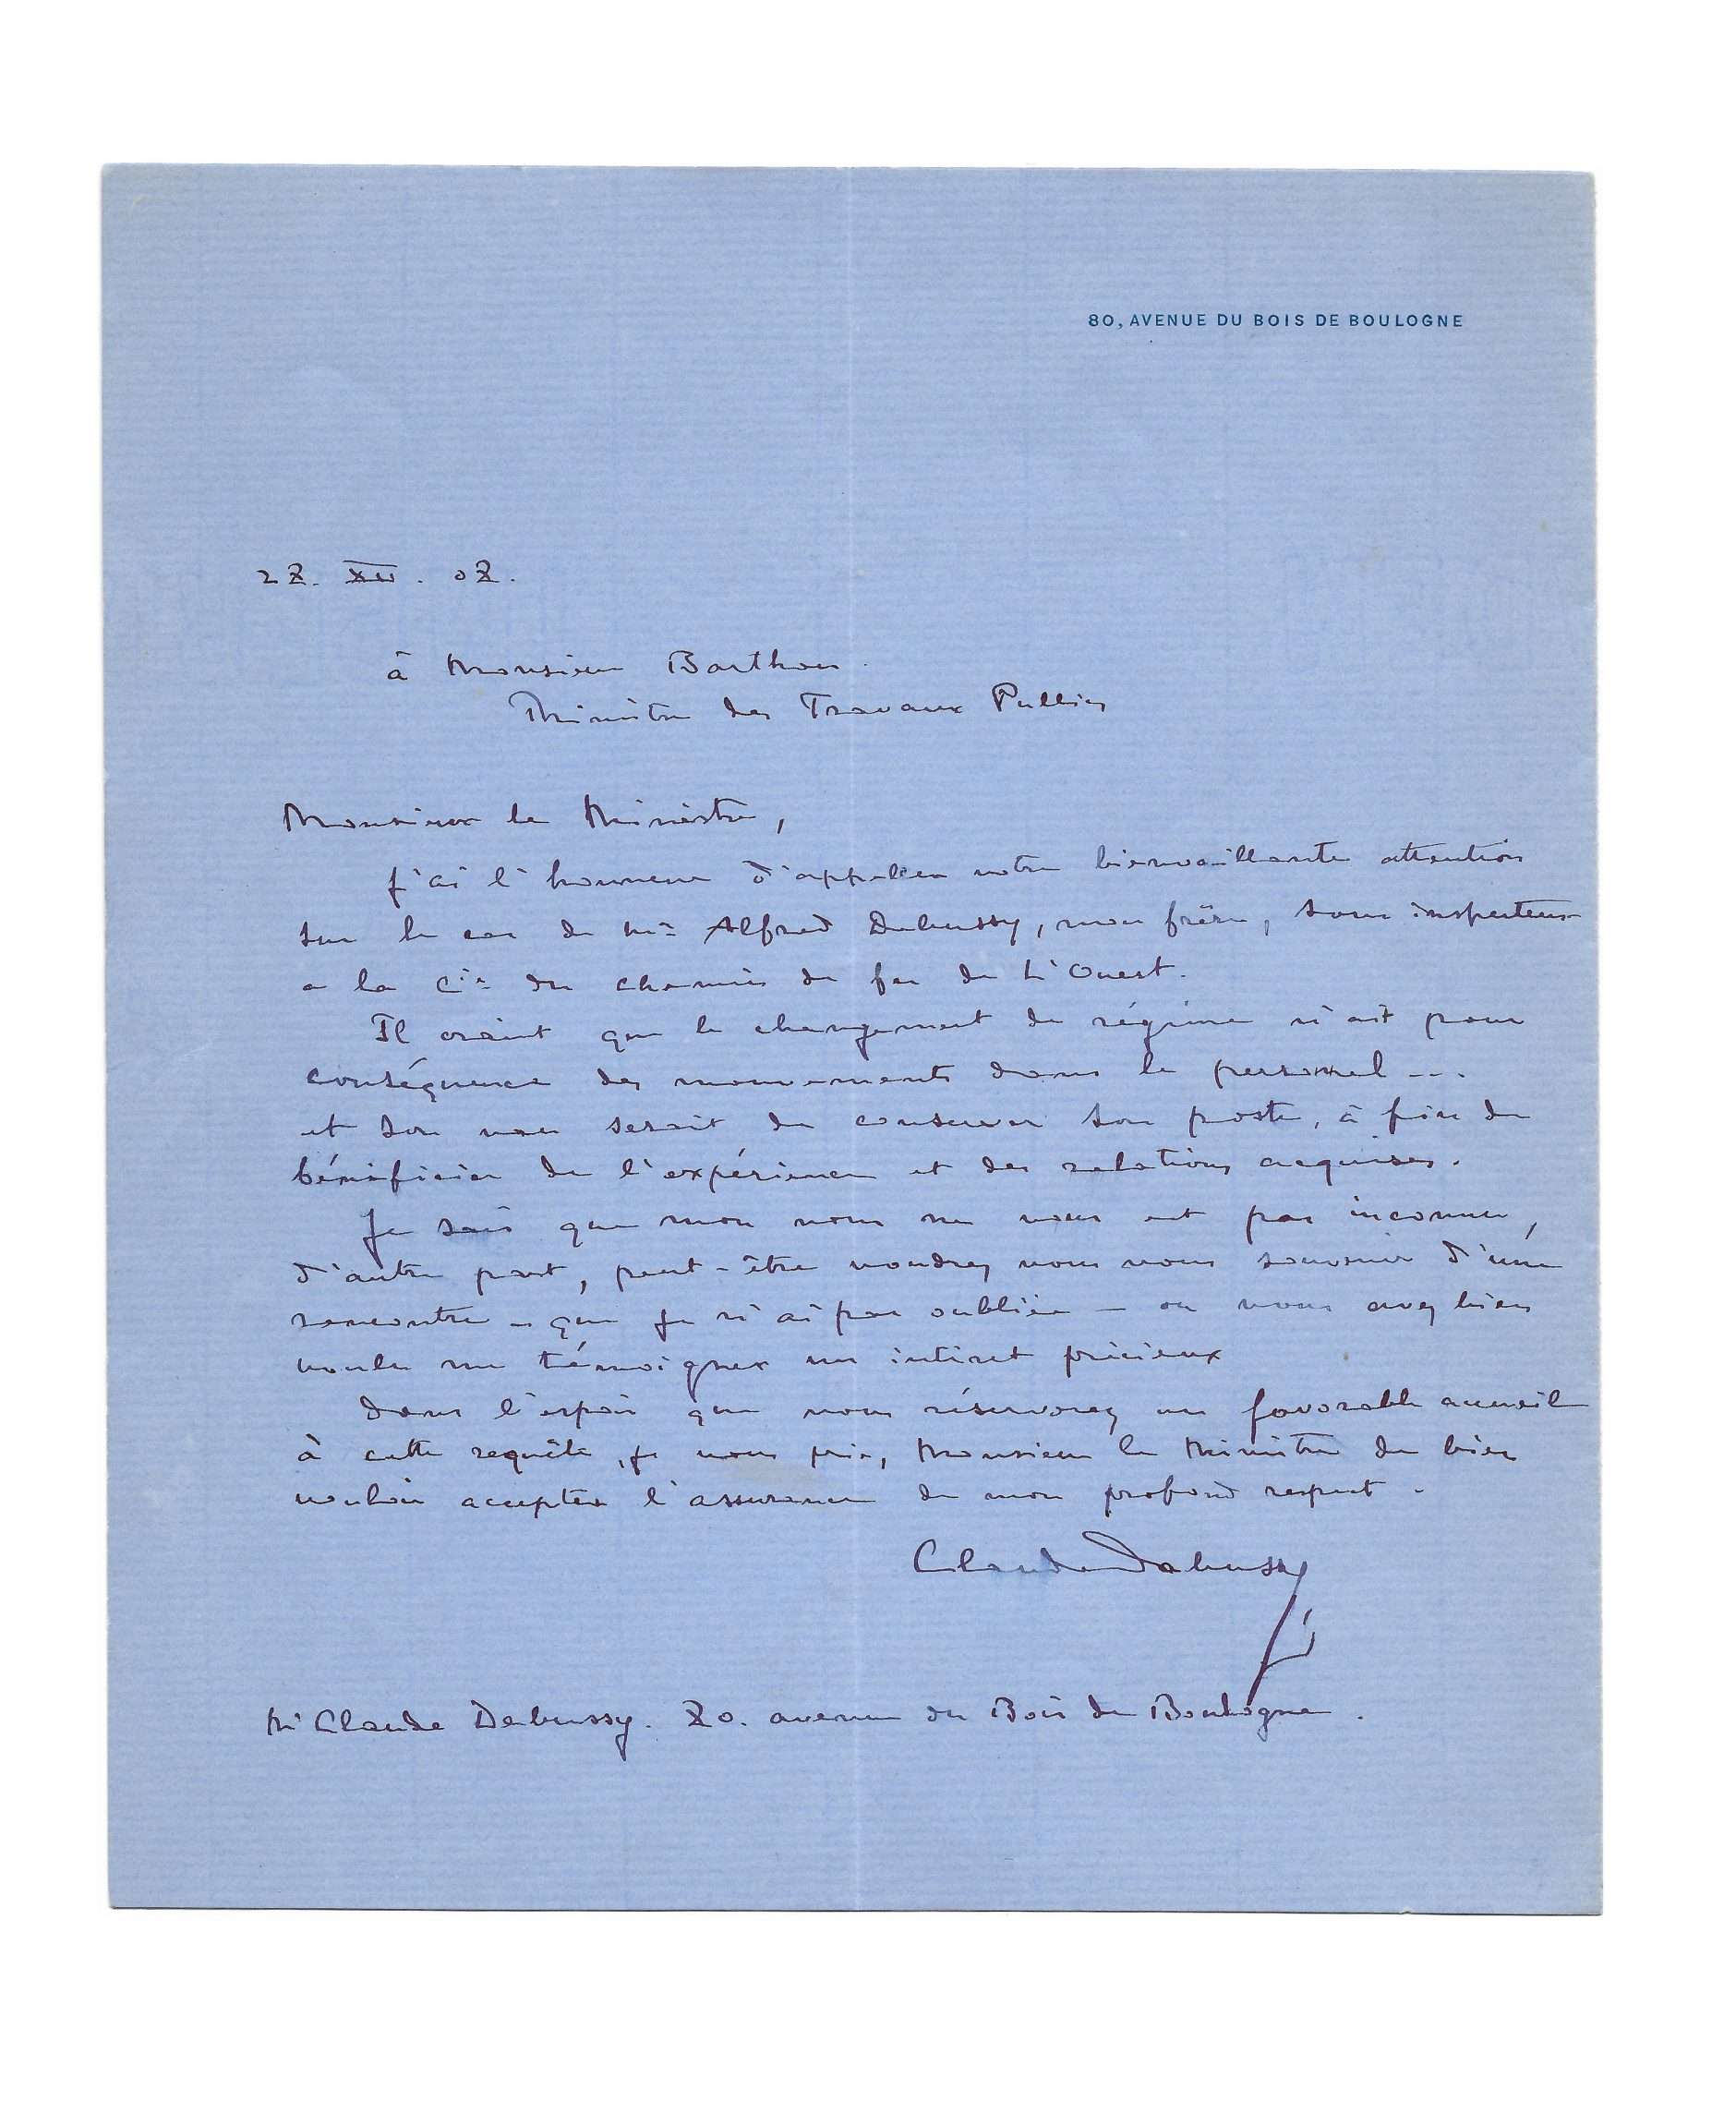 80, AVENUE DU BOIS DE BOULOGNE
28. XII. 08.
à Monsieur Barthou.
Ministre des Travaux Publics
Monsieur le Ministre,
J'ai l'honneur d'appeler votre bienveillante attention
sur le cas de Mr Alfred Debussy, mon frère, sous inspecteur
a la Cie du chemin de fer de L'Ouest.
Il craint que le changement de régime n'ait pour
conséquence des mouvements dans le personnel ...
et son vœu serait de conserver son poste, à fin de
bénéficier de l'expérience et des relations acquises.
Je sais que mon nom ne vous est pas inconnu,
d'autre part, peut-être voudrez vous vous souvenir d'une
rencontre – que je n'ai pas oubliée – ou vous avez bien
voulu me témoigner un intéret précieux
Dans l'espoir que vous réserverez un favorable accueil
à cette requête, je vous prie, Monsieur le Ministre de bien
vouloir accepter l'assurance de mon profond respect.
Claude Debussy
Mr Claude Debussy. 80. avenue du Bois de Boulogne.